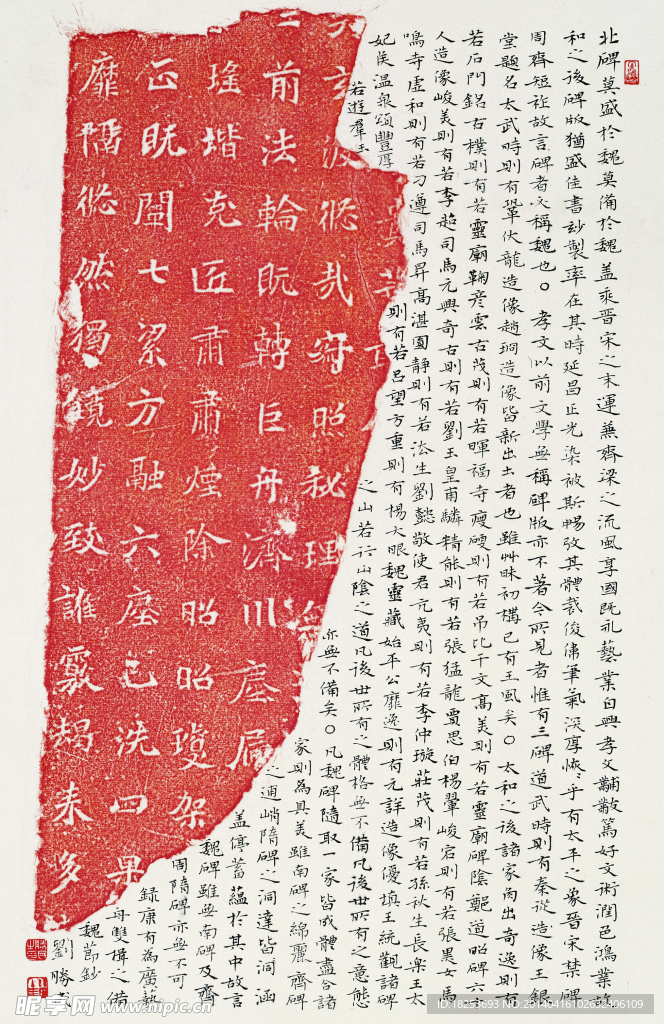 北碑莫盛於魏莫備於魏蓋乘晋宋之末運兼齊梁之流風享國既永藝業自興孝文黼黻篤好文術潤色鴻業故
和之後碑版猶盛佳書妙製率在其時延昌正光染被斯暢考其體裁俊偉筆氣深厚恢恢乎有太平之象晋宋禁碑
周齊短祚故言碑者必稱魏也。孝文以前文學無稱碑版亦不著今所見者惟有三碑道武時則有秦從造像王銀
堂題名太武時則有鞏伏龍造像趙珦造像皆新出土者也雖艸昧初構已有王風矣。太和之後諸家角出奇逸則有
若石門銘古樸則有若靈廟鞠彦雲古茂則有若暉福寺瘦硬則有若吊比干文高美則有若靈廟碑陰鄭道昭碑六
人造像峻美則有若李超司馬元興奇古則有若劉玉皇甫驎精能則有若張猛龍賈思伯楊翬峻宕則有若張黑女馬
鳴寺虚和則有若刁遵司馬昇高湛圓静則有若法生劉懿敬使君亢夷則有若李仲璇莊茂則有若孫秋生長樂王太
妃侯温泉頌豐厚
則有若吕望方重則有楊大眼魏靈藏始平公靡逸則有元詳造像優填王統觀諸碑
若遊群玉
之山若行山陰之道凡後世所有之體格無不備凡後世所有之意態
亦無不備矣。凡魏碑隨取一家皆成體盡合諸
家則為具美雖南碑之綿麗齊碑
之逋峭隋碑之洞達皆涵
蓋停蓄藴於其中故言
魏碑雖無南碑及齊
周隋碑亦無不可
録康有為廣藝
舟雙楫之備
魏節鈔
劉勝
波?哉窮照秘理
前法輪既轉巨舟濟川塵屆
瑤堦克匠肅肅煙除昭昭瓊架
正既闡七?方融六塵已洗四果
靡?然獨鏡妙致誰?耒多
昵享网 www.nipic.cn
ID:18253693 NO:20140416102632406109